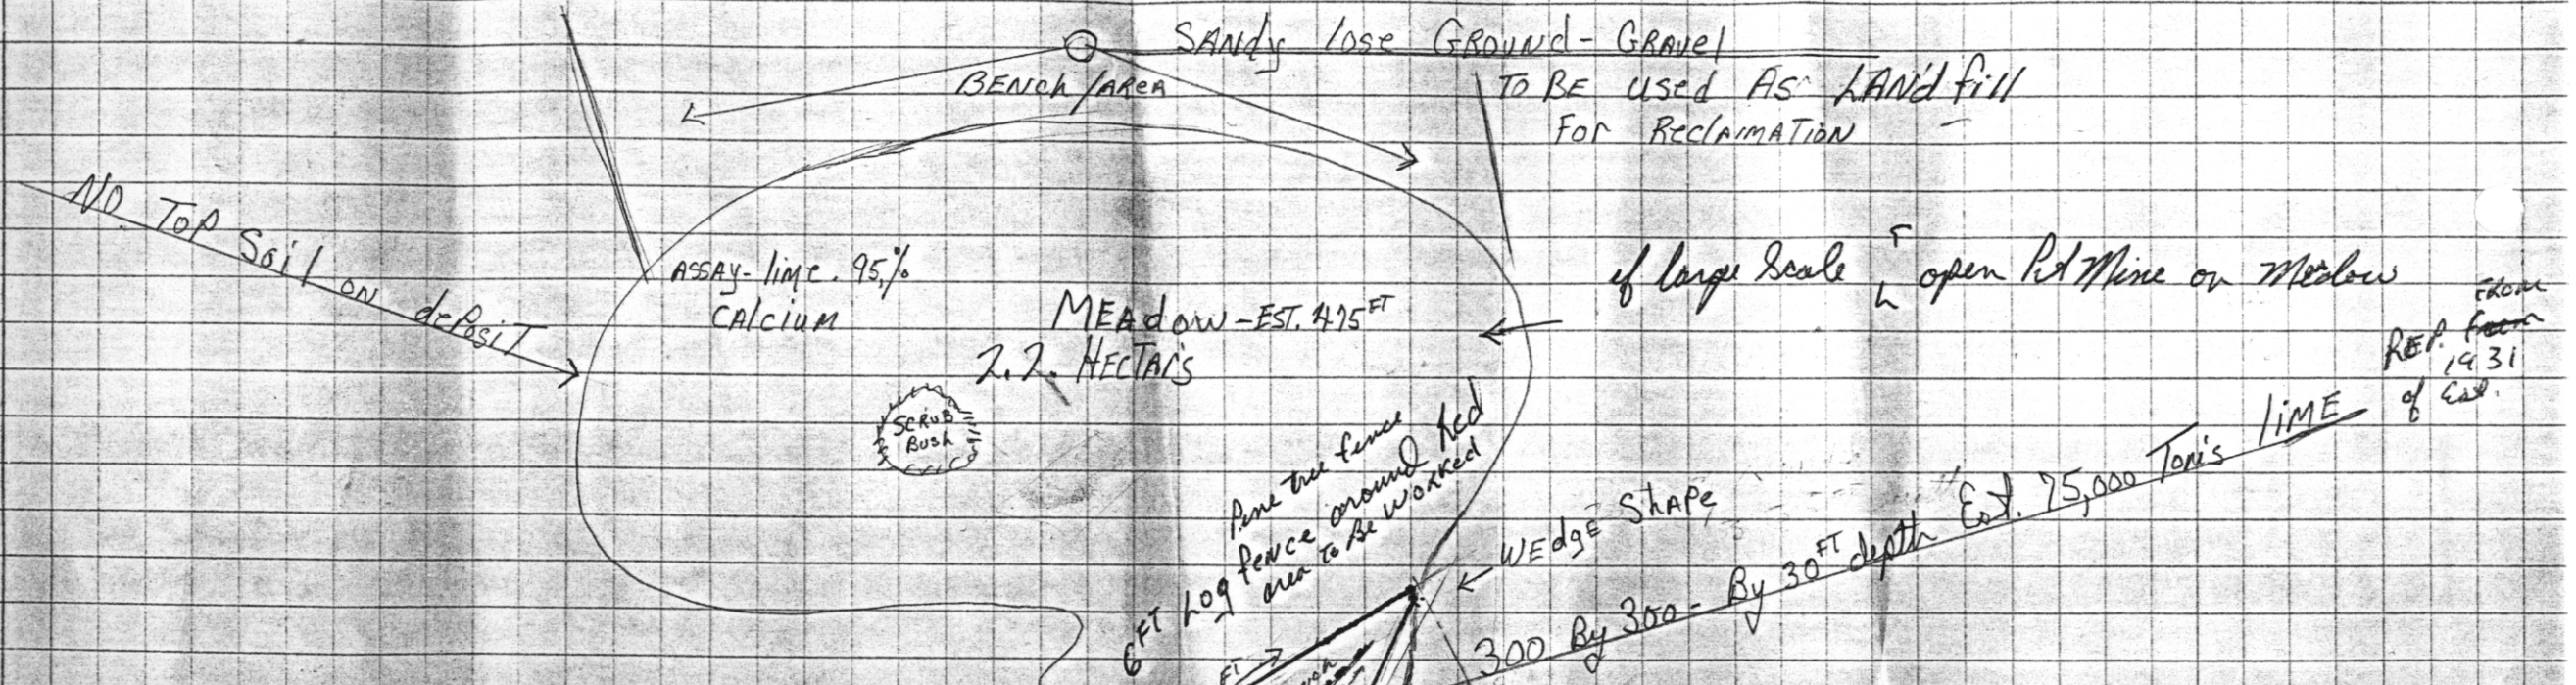 SANdy lose GROUNd - GRAVel
BENCh/AREA
TO BE used As LANdfill
FOR REClAIMATION
NO TOP SOil ON dePOSiT
ASSAY- lime. 95,%
CAlciUM
MEAdow - EST. 475 FT
2.2. HECTAr's
if large Scale open Pit Mine on Medow
SCRUB
BUSh
Pine tree fence
6 FT LOg fence around Red
area To Be WORKed
WEdgE ShAPE
300 By 300 - By 30 FT depth Est. 75,000 Ton's liME
FROM
REP. From
1931
of Est.
FT